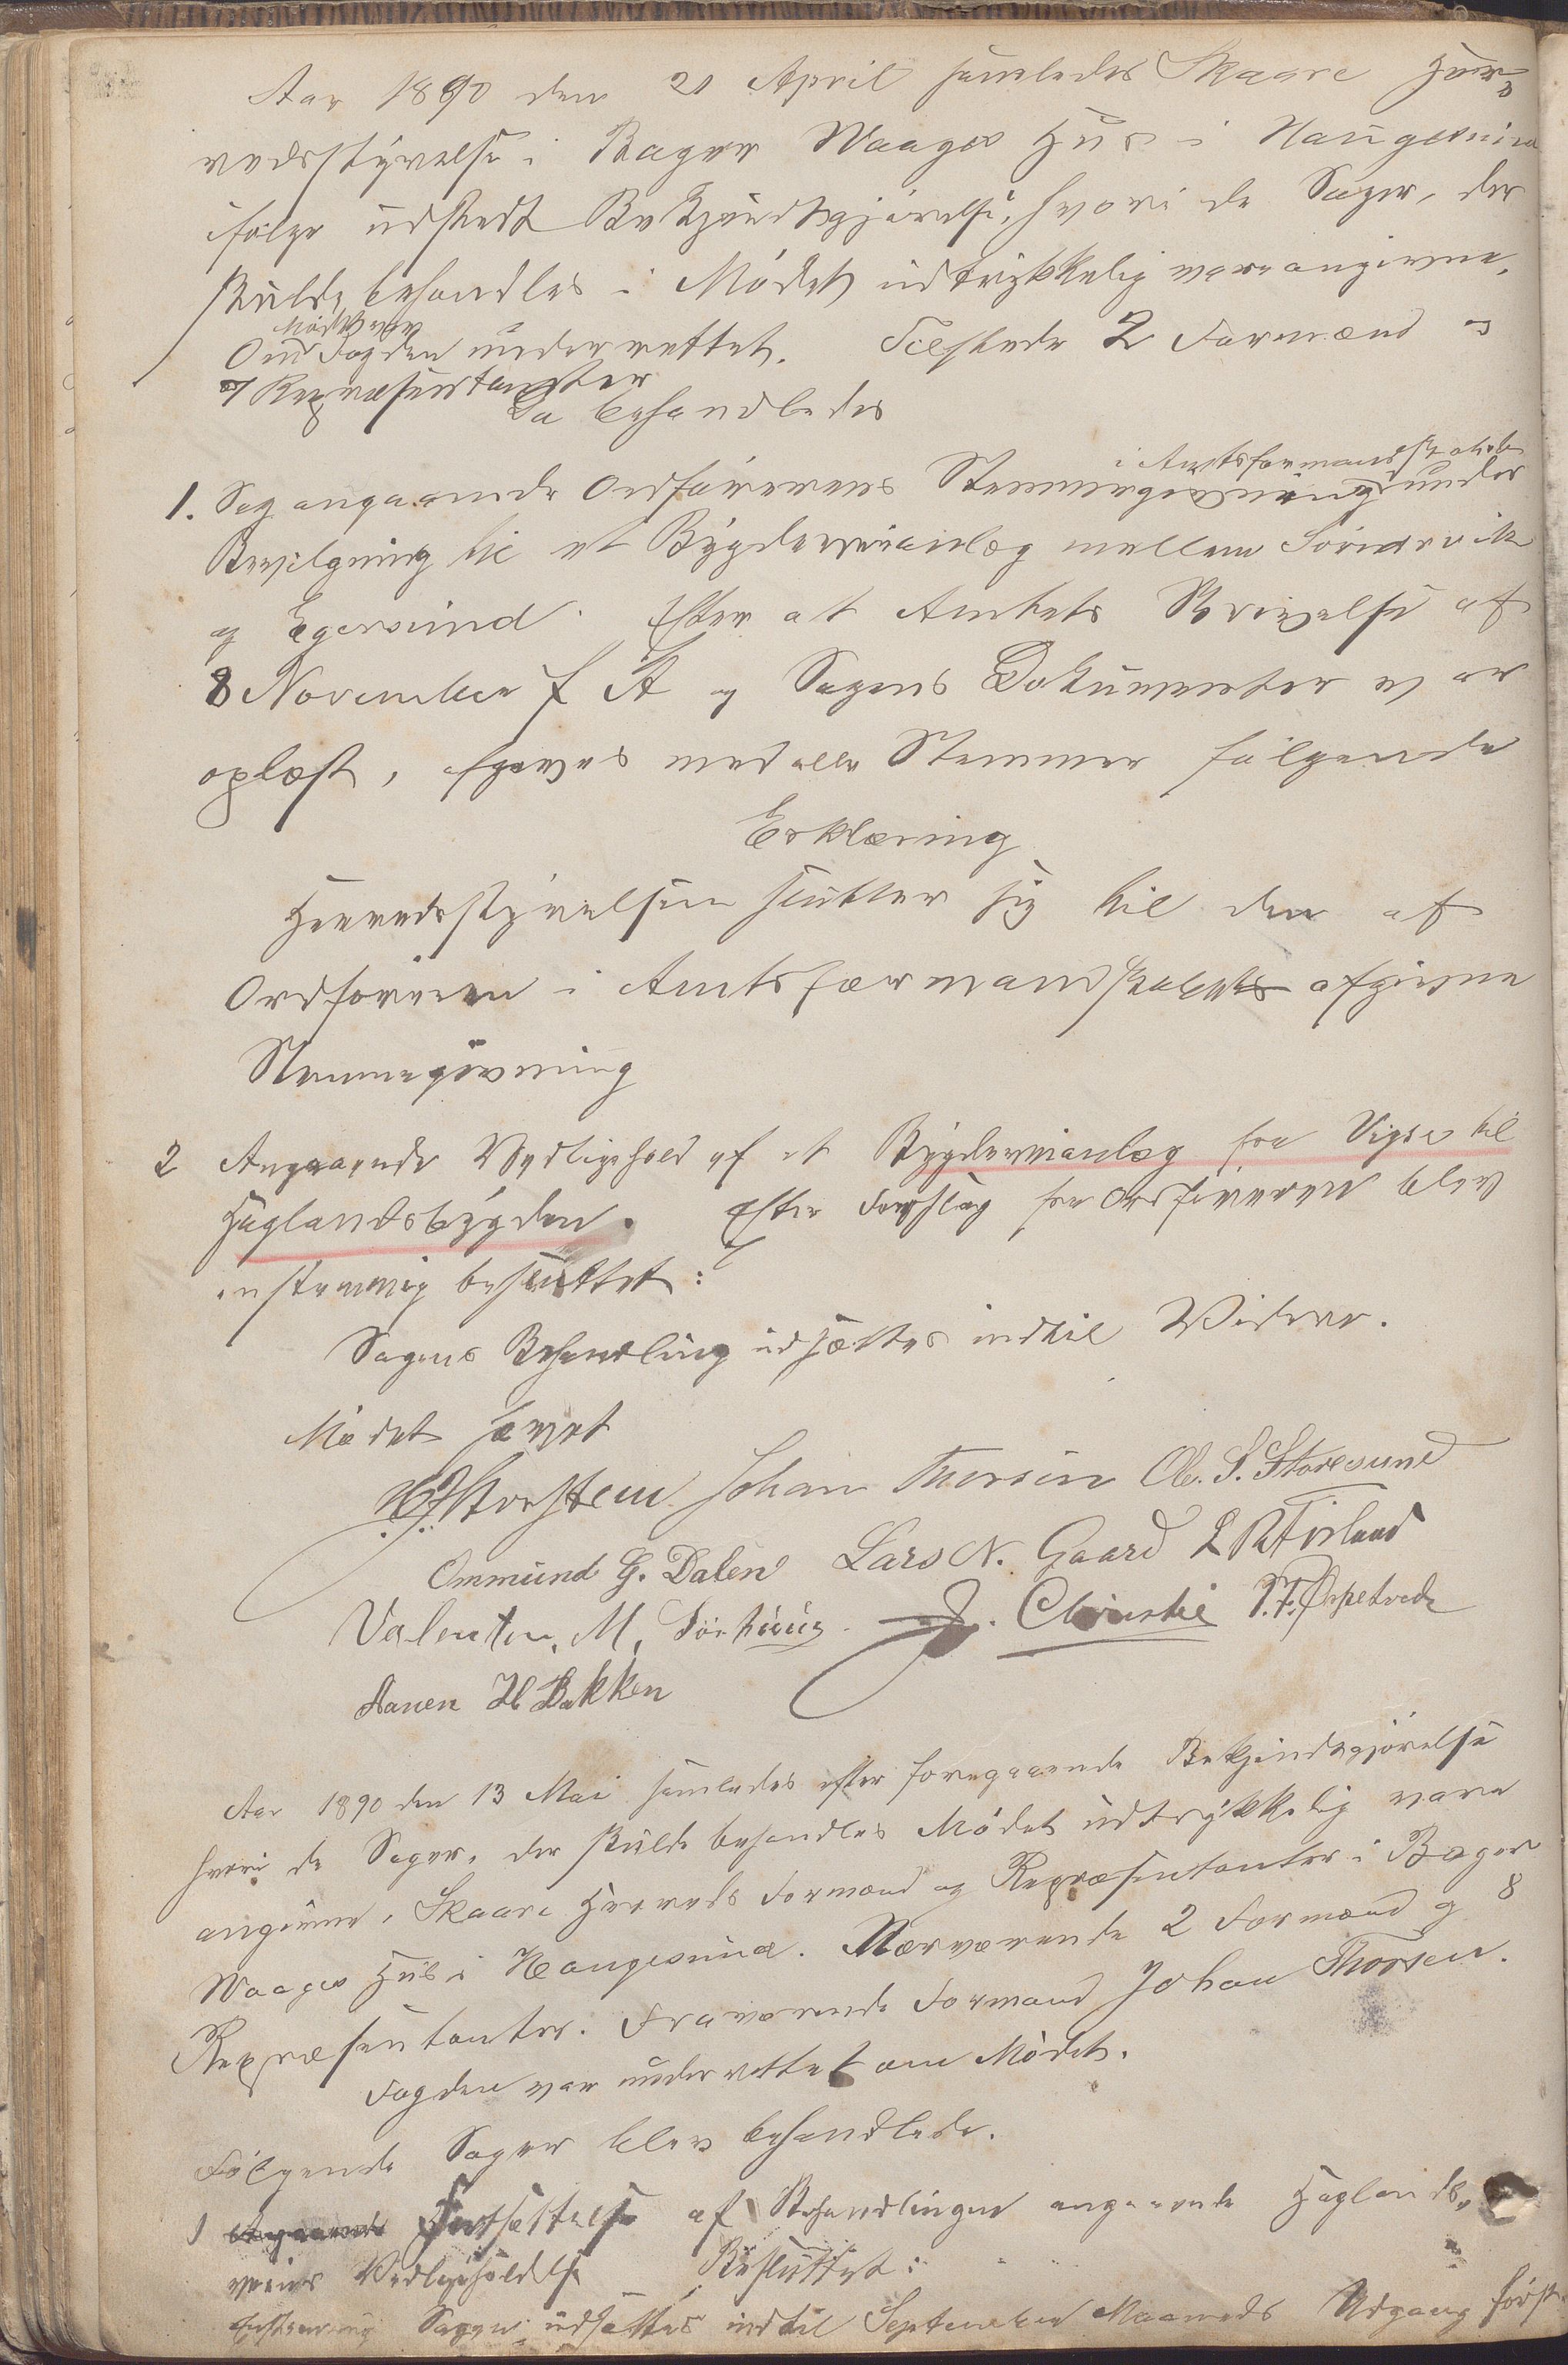 Aar 1890 den 21 April samledes Skaare Her-
redsstyrelse i Bager Waages Hus i Haugesund
ifølge udstedt Bekjendtgjørelse, hvori de Sager, der
skulde behandles i Mødet udtrykkelig vare angivne.
Mødet var
Om Fogden underrettet. Tilstede 2 Formænd og
7 Repræsentanter
Da behandledes
i Amtsformandskabet
1. Sag angaaende Ordførerens Stemmegivning under
Bevilgning til et Bygdeveianlæg mellem Sørmarvik
og Egersund. Efter at Amtets Skrivelse af
8 November f A og Sagens Dokumenter var
oplæst, afgaves med alle Stemmer følgende
Erklæring
Herredsstyrelsen slutter sig til den af
Ordføreren i Amtsformandskabets afgivne
Stemmegivning
2 Angaaende Vedligehold af et Bygdeveianlæg fra Vigse til
Haglandsbygden. Efter Forslag fra Ordføreren blev
enstemmig besluttet:
Sagens Behandling udsættes indtil Videre.
Mødet hævet
Storstein Johan Thorsen Ol. S. Storesund
Ommund G. Dalen Lars N. Gaard L RFørland
Valentin. M. Sørhuus. J. Christie T. T. Øspetvedt
Hansen H Bakken
Aar 1890 den 13 Mai samledes efter foregaaende Bekjendtgjørelse
hvori de Sager, der skulde behandles Mødet udtrykkelig vare
angivne, Skaare Herreds Formænd og Repræsentanter i Bager
Waages Hus i Haugesund. Nærværende 2 Formænd og 8
Repræsentanter. Fraværende Formand Johan Thorsen.
Fogden var underrettet om Mødet.
Følgende Sager blev behandlede.
1 Angaaende Fortsættelse af Behandlingen angaaende Haglands-
veiens Vedligeholdelse Besluttet:
Enstemmig Sagen udsættes indtil September Maaneds Udgang først